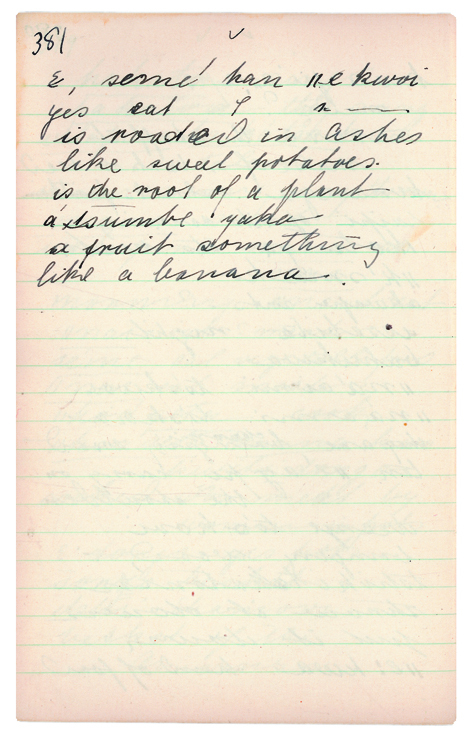 381
ε, semé han ɲe kwoi
yes eat I n ——
is roasted in ashes
like sweet potatoes.
is the root of a plant
á tsumbe yaka
a fruit something
like a banana.